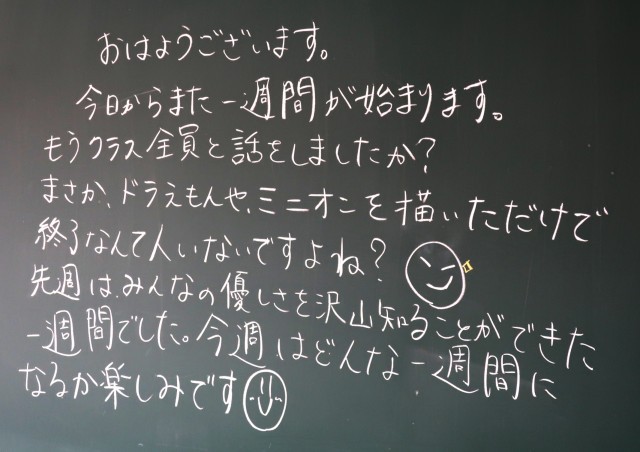 おはようございます。
今日からまた一週間が始まります。
もうクラス全員と話をしましたか?
まさか、ドラえもんや、ミニオンを描いただけで
終了なんて人いないですよね?
先週は、みんなの優しさを沢山知ることができた
一週間でした。今週はどんな一週間に
なるか楽しみです